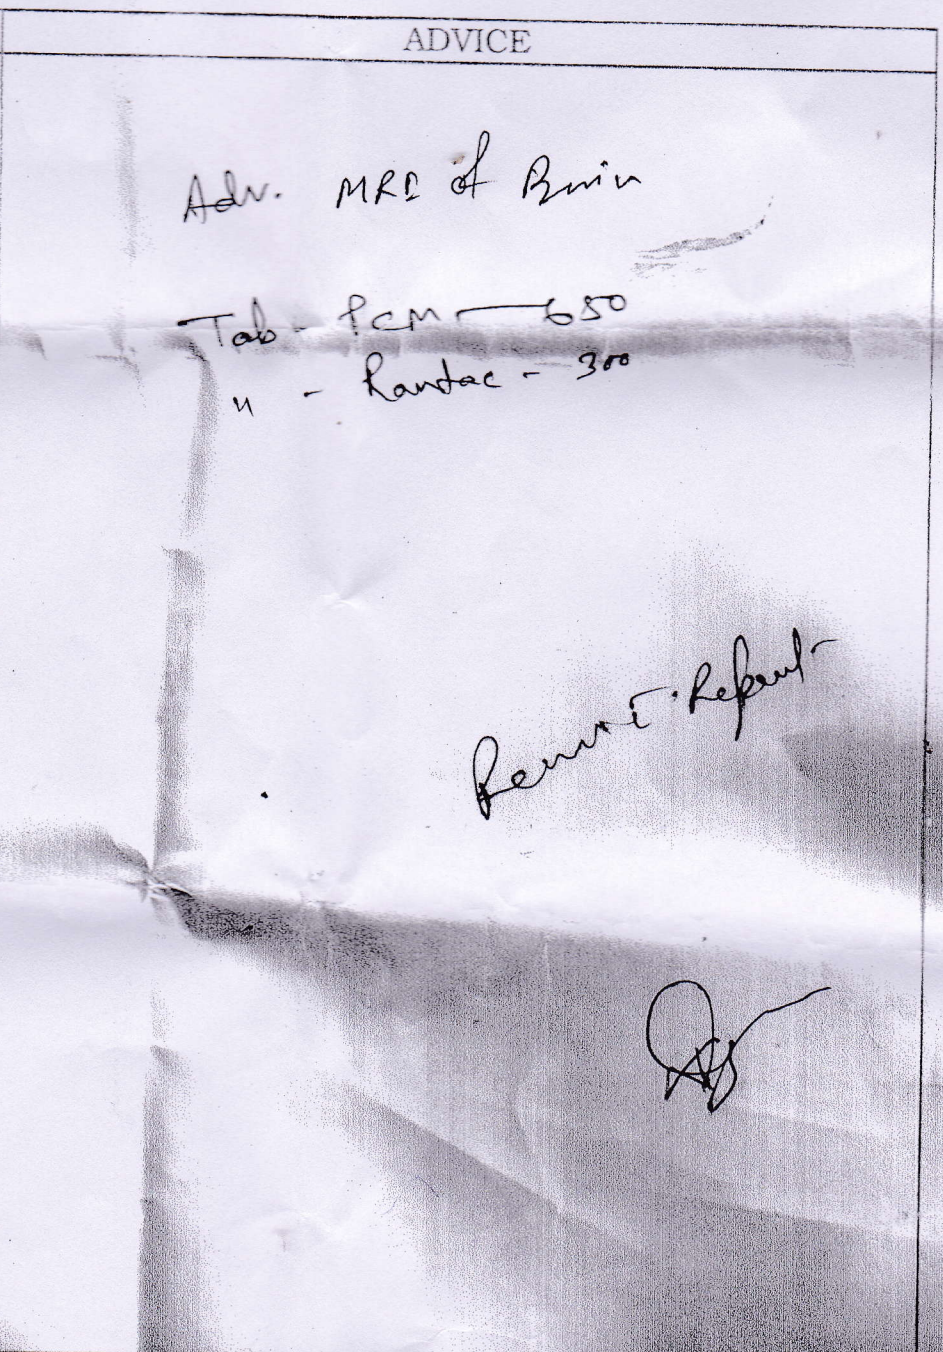 ADVICE
Adv. MRI of Brain
Tab - PCM — 650
" - Rantac - 300
Review c̄ Report